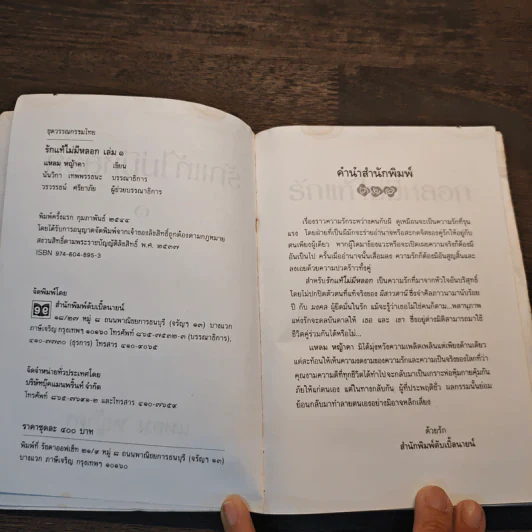 ชุดวรรณกรรมไทย
รักแท้ไม่มีหลอก เล่ม ๑
แหลม หญ้าคา เขียน
นันวิภา เทพพวรรธนะ บรรณาธิการ
วรวรรธน์ ศรียาภัย ผู้ช่วยบรรณาธิการ
พิมพ์ครั้งแรก กุมภาพันธ์ ๒๕๔๔
โดยได้รับการอนุญาตจัดพิมพ์จากเจ้าของลิขสิทธิ์ถูกต้องตามกฎหมาย
สงวนลิขสิทธิ์ตามพระราชบัญญัติลิขสิทธิ์ พ.ศ. ๒๕๓๗
ISBN 974-604-895-3
จัดพิมพ์โดย
สำนักพิมพ์ดับเบิ้ลนายน์
หมู่ ๘ ถนนพาณิชยการธนบุรี (จรัญฯ ๑๓) บางแวก
ภาษีเจริญ กรุงเทพฯ ๑๐๑๖๐ โทรศัพท์ (บรรณาธิการ),
(ธุรการ) โทรสาร
จัดจำหน่ายทั่วประเทศโดย
บริษัทบุ๊คแมนพริ้นท์ จำกัด
โทรศัพท์ และโทรสาร
ราคาชุดละ ๔๐๐ บาท
พิมพ์ที่ ร้อยดาวออฟเซ็ท ๒๑/๙ หมู่ ๘ ถนนพาณิชยการธนบุรี (จรัญฯ ๑๓)
บางแวก ภาษีเจริญ กรุงเทพฯ ๑๐๑๖๐
คำนำสำนักพิมพ์
เรื่องราวความรักระหว่างคนกับผี ดูเหมือนจะเป็นความรักที่รุน
แรง โดยฝ่ายที่เป็นผีมักจะร่ายอำนาจหรือสะกดจิตของคู่รักให้อยู่กับ
ตนเพียงผู้เดียว หากผู้ใดมาข้องแวะหรือจะเปิดเผยความจริงก็ต้องมี
อันเป็นไป ครั้นเมื่ออำนาจนั้นเสื่อมลง ความรักก็ต้องมีอันสูญสิ้นและ
ลงเอยด้วยความปวดร้าวที่รคู่
สำหรับรักแท้ไม่มีหลอก เป็นความรักที่มาจากหัวใจอันบริสุทธิ์
โดยไม่ปกปิดตัวตนที่แท้จริงของ ผีสาวตานีซึ่งจำศีลภาวนามานับร้อย
ปี กับ มงคล ผู้ยึดมั่นในรัก แม้จะรู้ว่าเธอไม่ใช่คนก็ตาม...พลานุภาพ
แห่งรักจะดลบันดาลให้ เธอ และ เขา ซึ่งอยู่ต่างมิติสามารถมาใช้
ชีวิตคู่ร่วมกันได้หรือไม่...
แหลม หญ้าคา มิได้มุ่งหวังความเพลิดเพลินแต่เพียงด้านเดียว
แต่สะท้อนให้เห็นความงดงามของความรักและความเป็นจริงของโลกที่ว่า
คุณงามความดีที่ทุกชีวิตได้ทำไปจะกลับมาเป็นเกราะพ่อหุ้มกายคุ้มกัน
ภัยให้แก่ตนเอง แต่ในทางกลับกัน ผู้ที่ประพฤติชั่ว ผลกรรมนั้นย่อม
ย้อนกลับมาทำลายตนเองอย่างมิอาจหลีกเลี่ยง
ด้วยรัก
สำนักพิมพ์ดับเบิ้ลนายน์